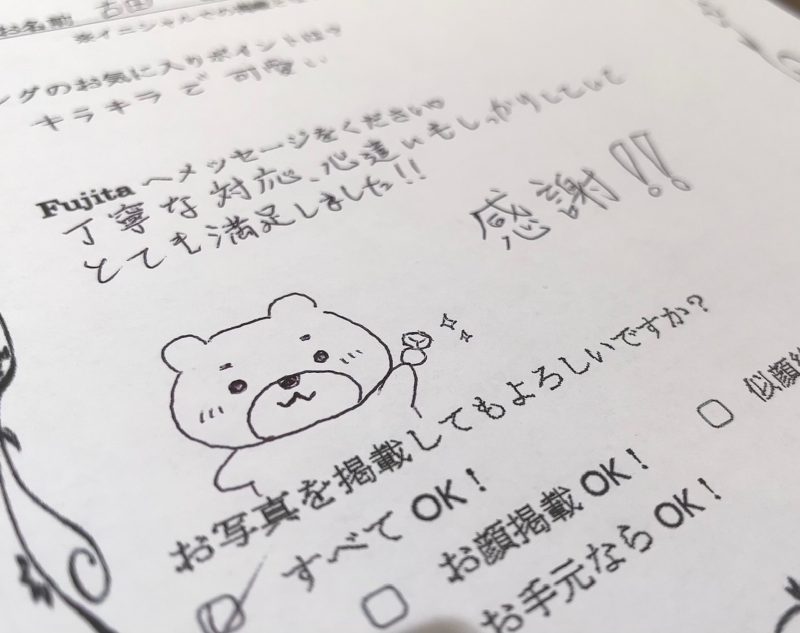 お名前 吉田
※イニシャルでの掲載とな
ングのお気に入りポイントは?
キラキラで可愛い
Fujitaへメッセージをください♡
丁寧な対応、心遣いもしっかりしていて
とても満足しました!!
感謝!!
お写真を掲載してもよろしいですか?
すべてOK!
お顔掲載OK!
お手元ならOK!
似顔絵